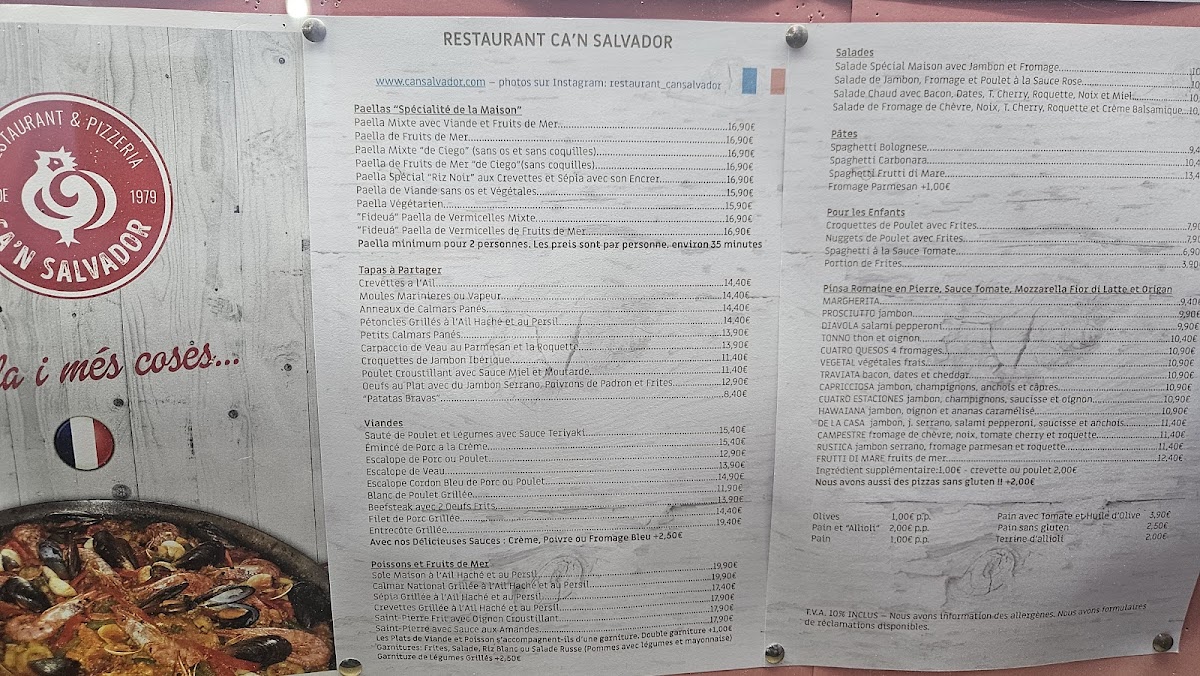 RESTAURANT & PIZZERIA
DE 1979
CA'N SALVADOR
la i més coses...
RESTAURANT CA'N SALVADOR
www.cansalvador.com – photos sur Instagram: restaurant_cansalvador
Paellas "Spécialité de la Maison"
Paella Mixte avec Viande et Fruits de Mer 16,90€
Paella de Fruits de Mer 16,90€
Paella Mixte "de Ciego" (sans os et sans coquilles) 16,90€
Paella de Fruits de Mer "de Ciego"(sans coquilles) 16,90€
Paella Spécial "Riz Noir" aux Crevettes et Sépia avec son Encrer 16,90€
Paella de Viande sans os et Végétales 15,90€
Paella Végétarien 15,90€
"Fideuá" Paella de Vermicelles Mixte 16,90€
"Fideuá" Paella de Vermicelles de Fruits de Mer 16,90€
Paella minimum pour 2 personnes. Les preis sont par personne. environ 35 minutes
Tapas à Partager
Crevettes a l'Ail 14,40€
Moules Marinieres ou Vapeur 14,40€
Anneaux de Calmars Panés 14,40€
Pétoncles Grillés à l'Ail Haché et au Persil 14,40€
Petits Calmars Panés 13,90€
Carpaccio de Veau au Parmesan et la Roquette 13,90€
Croquettes de Jambon Ibérique 11,40€
Poulet Croustillant avec Sauce Miel et Moutarde 11,40€
Oeufs au Plat avec du Jambon Serrano, Poivrons de Padron et Frites 12,90€
"Patatas Bravas" 8,40€
Viandes
Sauté de Poulet et Légumes avec Sauce Teriyaki 15,40€
Émincé de Porc a la Crème 15,40€
Escalope de Porc ou Poulet 12,90€
Escalope de Veau 13,90€
Escalope Cordon Bleu de Porc ou Poulet 14,90€
Blanc de Poulet Grillée 11,90€
Beefsteak avec 2 Oeufs Frits 13,90€
Filet de Porc Grillée 14,40€
Entrecôte Grillée 19,40€
Avec nos Délicieuses Sauces : Crème, Poivre ou Fromage Bleu +2,50€
Poissons et Fruits de Mer
Sole Maison à l'Ail Haché et au Persil 19,90€
Calmar National Grillée à l'Ail Haché et au Persil 19,90€
Sépia Grillée à l'Ail Haché et au Persil 17,40€
Crevettes Grillée à l'Ail Haché et au Persil 17,90€
Saint-Pierre Frit avec Oignon Croustillant 17,90€
Saint-Pierre avec Sauce aux Amandes 17,90€
Les Plats de Viande et Poisson s'accompagnent-ils d'une garniture. Double garniture +1,00€
Garnitures: Frites, Salade, Riz Blanc ou Salade Russe (Pommes avec légumes et mayonnaise)
Garniture de Légumes Grillés +2,50€
Salades
Salade Spécial Maison avec Jambon et Fromage 10
Salade de Jambon, Fromage et Poulet à la Sauce Rose 10
Salade Chaud avec Bacon, Dates, T. Cherry, Roquette, Noix et Miel 10,
Salade de Fromage de Chèvre, Noix, T. Cherry, Roquette et Crème Balsamique 10,
Pâtes
Spaghetti Bolognese 9,4
Spaghetti Carbonara 10,4
Spaghetti Frutti di Mare 13,4
Fromage Parmesan +1,00€
Pour les Enfants
Croquettes de Poulet avec Frites 7,90
Nuggets de Poulet avec Frites 7,90
Spaghetti à la Sauce Tomate 6,90
Portion de Frites 3,90
Pinsa Romaine en Pierre, Sauce Tomate, Mozzarella Fior di Latte et Origan
MARGHERITA 9,40€
PROSCIUTTO jambon 9,90€
DIAVOLA salami pepperoni 9,90€
TONNO thon et oignon 10,40€
CUATRO QUESOS 4 fromages 10,90€
VEGETAL végétales frais 10,90€
TRAVIATA bacon, dates et cheddar 10,90€
CAPRICCIOSA jambon, champignons, anchois et câpres 10,90€
CUATRO ESTACIONES jambon, champignons, saucisse et oignon 10,90€
HAWAIANA jambon, oignon et ananas caramélisé 10,90€
DE LA CASA jambon, j. serrano, salami pepperoni, saucisse et anchois 11,40€
CAMPESTRE fromage de chèvre, noix, tomate cherry et roquette 11,40€
RUSTICA jambon serrano, fromage parmesan et roquette 11,40€
FRUTTI DI MARE fruits de mer 12,40€
Ingrédient supplémentaire:1,00€ - crevette ou poulet 2,00€
Nous avons aussi des pizzas sans gluten !! +2,00€
Olives 1,00€ p.p. Pain avec Tomate et Huile d'Olive 3,90€
Pain et "Allioli" 2,00€ p.p. Pain sans gluten 2,50€
Pain 1,00€ p.p. Terrine d'allioli 2,00€
T.V.A. 10% INCLUS – Nous avons information des allergènes. Nous avons formulaires
de réclamations disponibles.